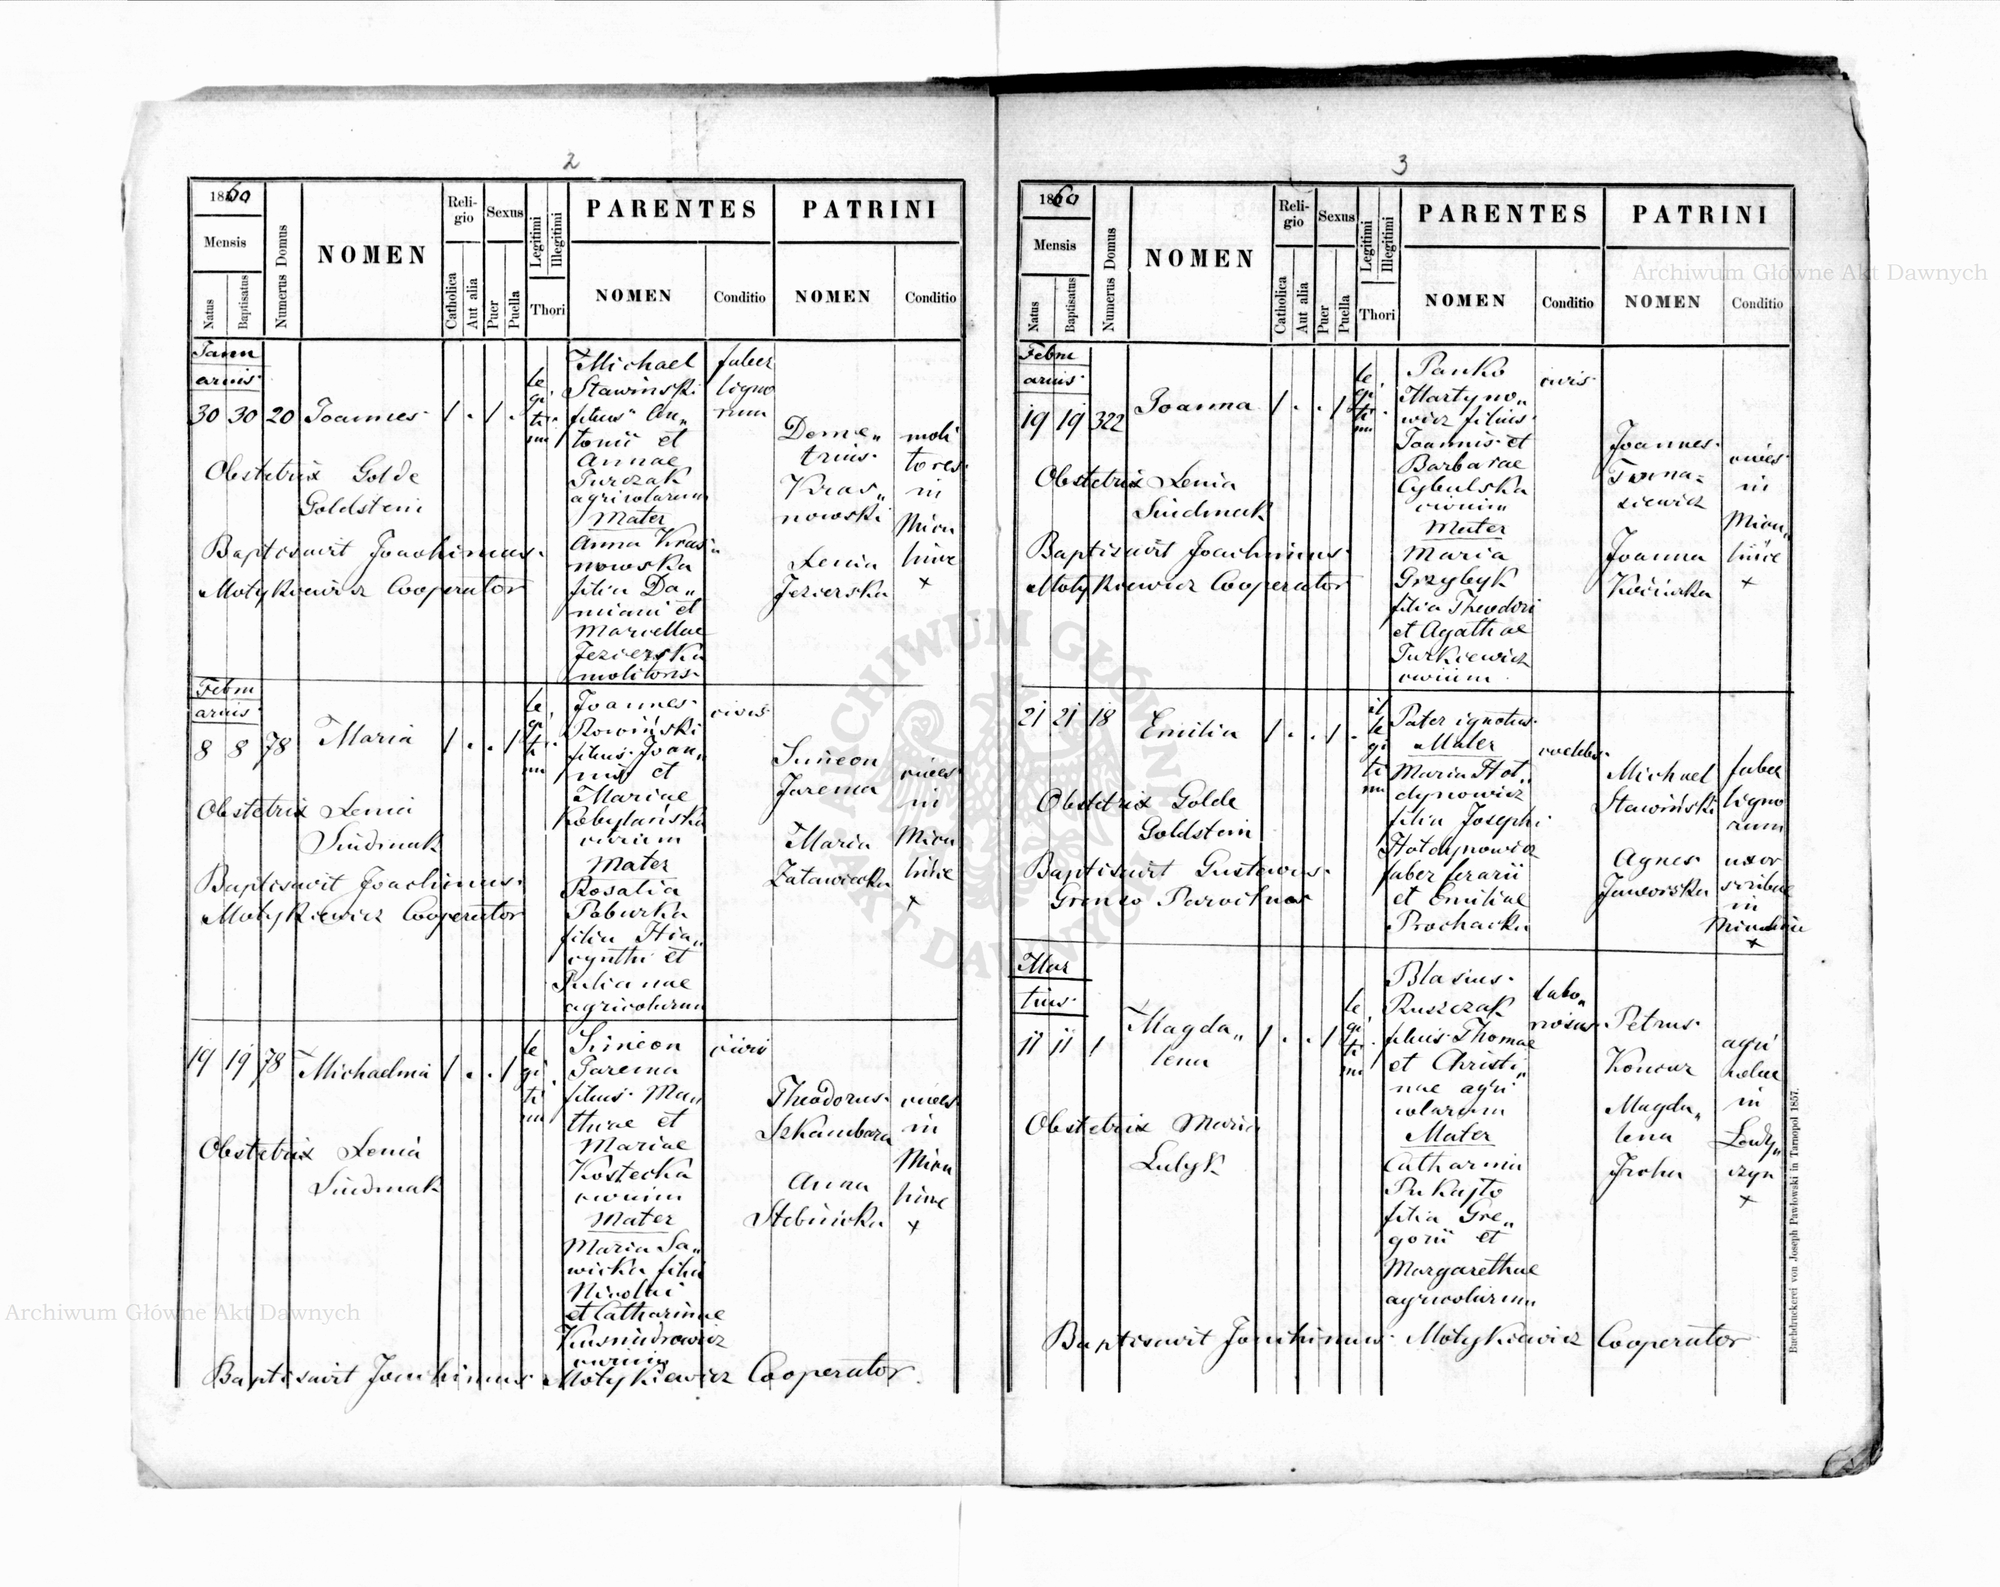 2
1860
Mensis
Natus
Baptisatus
Numerus Domus
NOMEN
Religio
Catholica
Aut alia
Sexus
Puer
Puella
Legitimi
Illegitimi
Thori
PARENTES
NOMEN
Conditio
PATRINI
NOMEN
Conditio
Janu
arius
30 30 20 Joannes 1 . 1 .
le
gi
ti
mi
Obstetrix Golde
Goldstein
Baptisavit Joachimus
Motykiewicz Cooperator
Michael
Stawinski
filius An„
tonii et
Annae
Turczak
agricolarum
Mater
Anna Kras„
nowska
filia Da„
miani et
Marcellae
Jezierska
molitoris
faber
ligno
rum
Deme„
trius
Kras„
nowski
Xenia
Jezierska
moli
tores
in
Miku
lince
+
Febru
arius
8 8 78 Maria 1 . . 1
le
gi
ti
mi
Obstetrix Xenia
Baptisavit Joachimus
Motykiewicz Cooperator
Joannes
Rowiński
filius Joan„
nis et
Mariae
Kobylańska
civium
Mater
Rosalia
filia Hia„
cynthi et
Julianae
agricolarum
civis
Simeon
Jarema
Maria
cives
in
Miku
lince
+
19 19 78 Michaelina 1 . . 1
le
gi
ti
mi
Obstetrix Xenia
Simeon
Jarema
filius Mat
thiae et
Mariae
Kostecka
civium
Mater
Maria Sa„
wicka filia
Nicolai
et Catharinae
civium
civis
Theodorus
Szkambara
Anna
Stebnicka
cives
in
Miku
lince
+
Baptisavit Joachimus Motykiewicz Cooperator
3
1860
Mensis
Natus
Baptisatus
Numerus Domus
NOMEN
Religio
Catholica
Aut alia
Sexus
Puer
Puella
Legitimi
Illegitimi
Thori
PARENTES
NOMEN
Conditio
PATRINI
NOMEN
Conditio
Febru
arius
19 19 322 Joanna 1 . . 1
le
gi
ti
mi
Obstetrix Xenia
Baptisavit Joachimus
Motykiewicz Cooperator
Panko
Martyno„
wicz filius
Joannis et
Barbarae
Cybulska
civium
Mater
Maria
Grzybyk
filia Theodori
et Agathae
Turkiewicz
civium
civis
Joannes
Toma=
siewicz
Joanna
cives
in
Miku„
lince
+
21 21 18 Emilia 1 . . 1 .
il
le
gi
ti
mi
Obstetrix Golde
Goldstein
Baptisavit Gustavus
Pater ignotus
Mater
Maria Hot„
dynowicz
filia Josephi
Hotdynowicz
faber ferarii
et Emiliae
Prochacka
Michael
Stawinski
Agnes
Jaworska
faber
ligno
rum
uxor
scribae
in
Mikulince
+
Mar
tius
11 11 1 Magda„
lena 1 . . 1
le
gi
ti
mi
Obstetrix Maria
Lulyk
Blasius
Ruszczak
filius Thomae
et Christi„
nae agri
colarum
Mater
Catharina
Pukajto
filia Gre„
gorii et
Margarethae
agricolarum
labo„
riosus
Petrus
Koncur
Magda„
lena
agri
colae
in
Ladyczyn
+
Baptisavit Joachimus Motykiewicz Cooperator
Buchdruckerei von Joseph Pawłowski in Tarnopol 1857.
Archiwum Główne Akt Dawnych
Archiwum Główne Akt Dawnych
ARCHIWUM GŁÓWNE AKT DAWNYCH